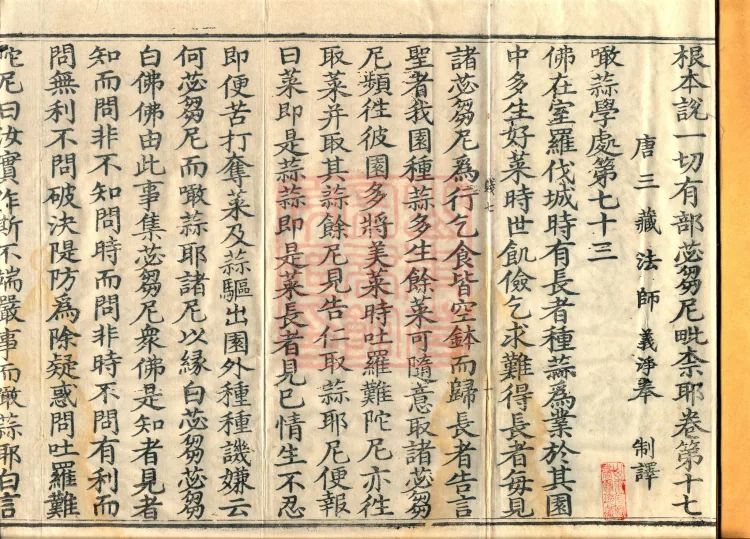 根本說一切有部苾芻尼毗柰耶卷第十七
唐三藏法師義淨奉 制譯
噉蒜學處第七十三
佛在室羅伐城時有長者種蒜為業於其園
中多生好菜時世飢儉乞求難得長者每見
諸苾芻尼為行乞食皆空鉢而歸長者告言
聖者我園種蒜多生餘菜可隨意取諸苾芻
尼頻徃彼園多將美菜時吐羅難陀尼亦徃
取菜并取其蒜餘尼見告仁取蒜耶尼便報
曰菜即是蒜蒜即是菜長者見已情生不忍
即便苦打奪菜及蒜驅出園外種種譏嫌云
何苾芻尼而噉蒜耶諸尼以緣白苾芻苾芻
白佛佛由此事集苾芻尼衆佛是知者見者
知而問非不知問時而問非時不問有利而
問無利不問破決隄防為除疑惑問吐羅難
陀尼曰汝實作斯不端嚴事而噉蒜耶白言